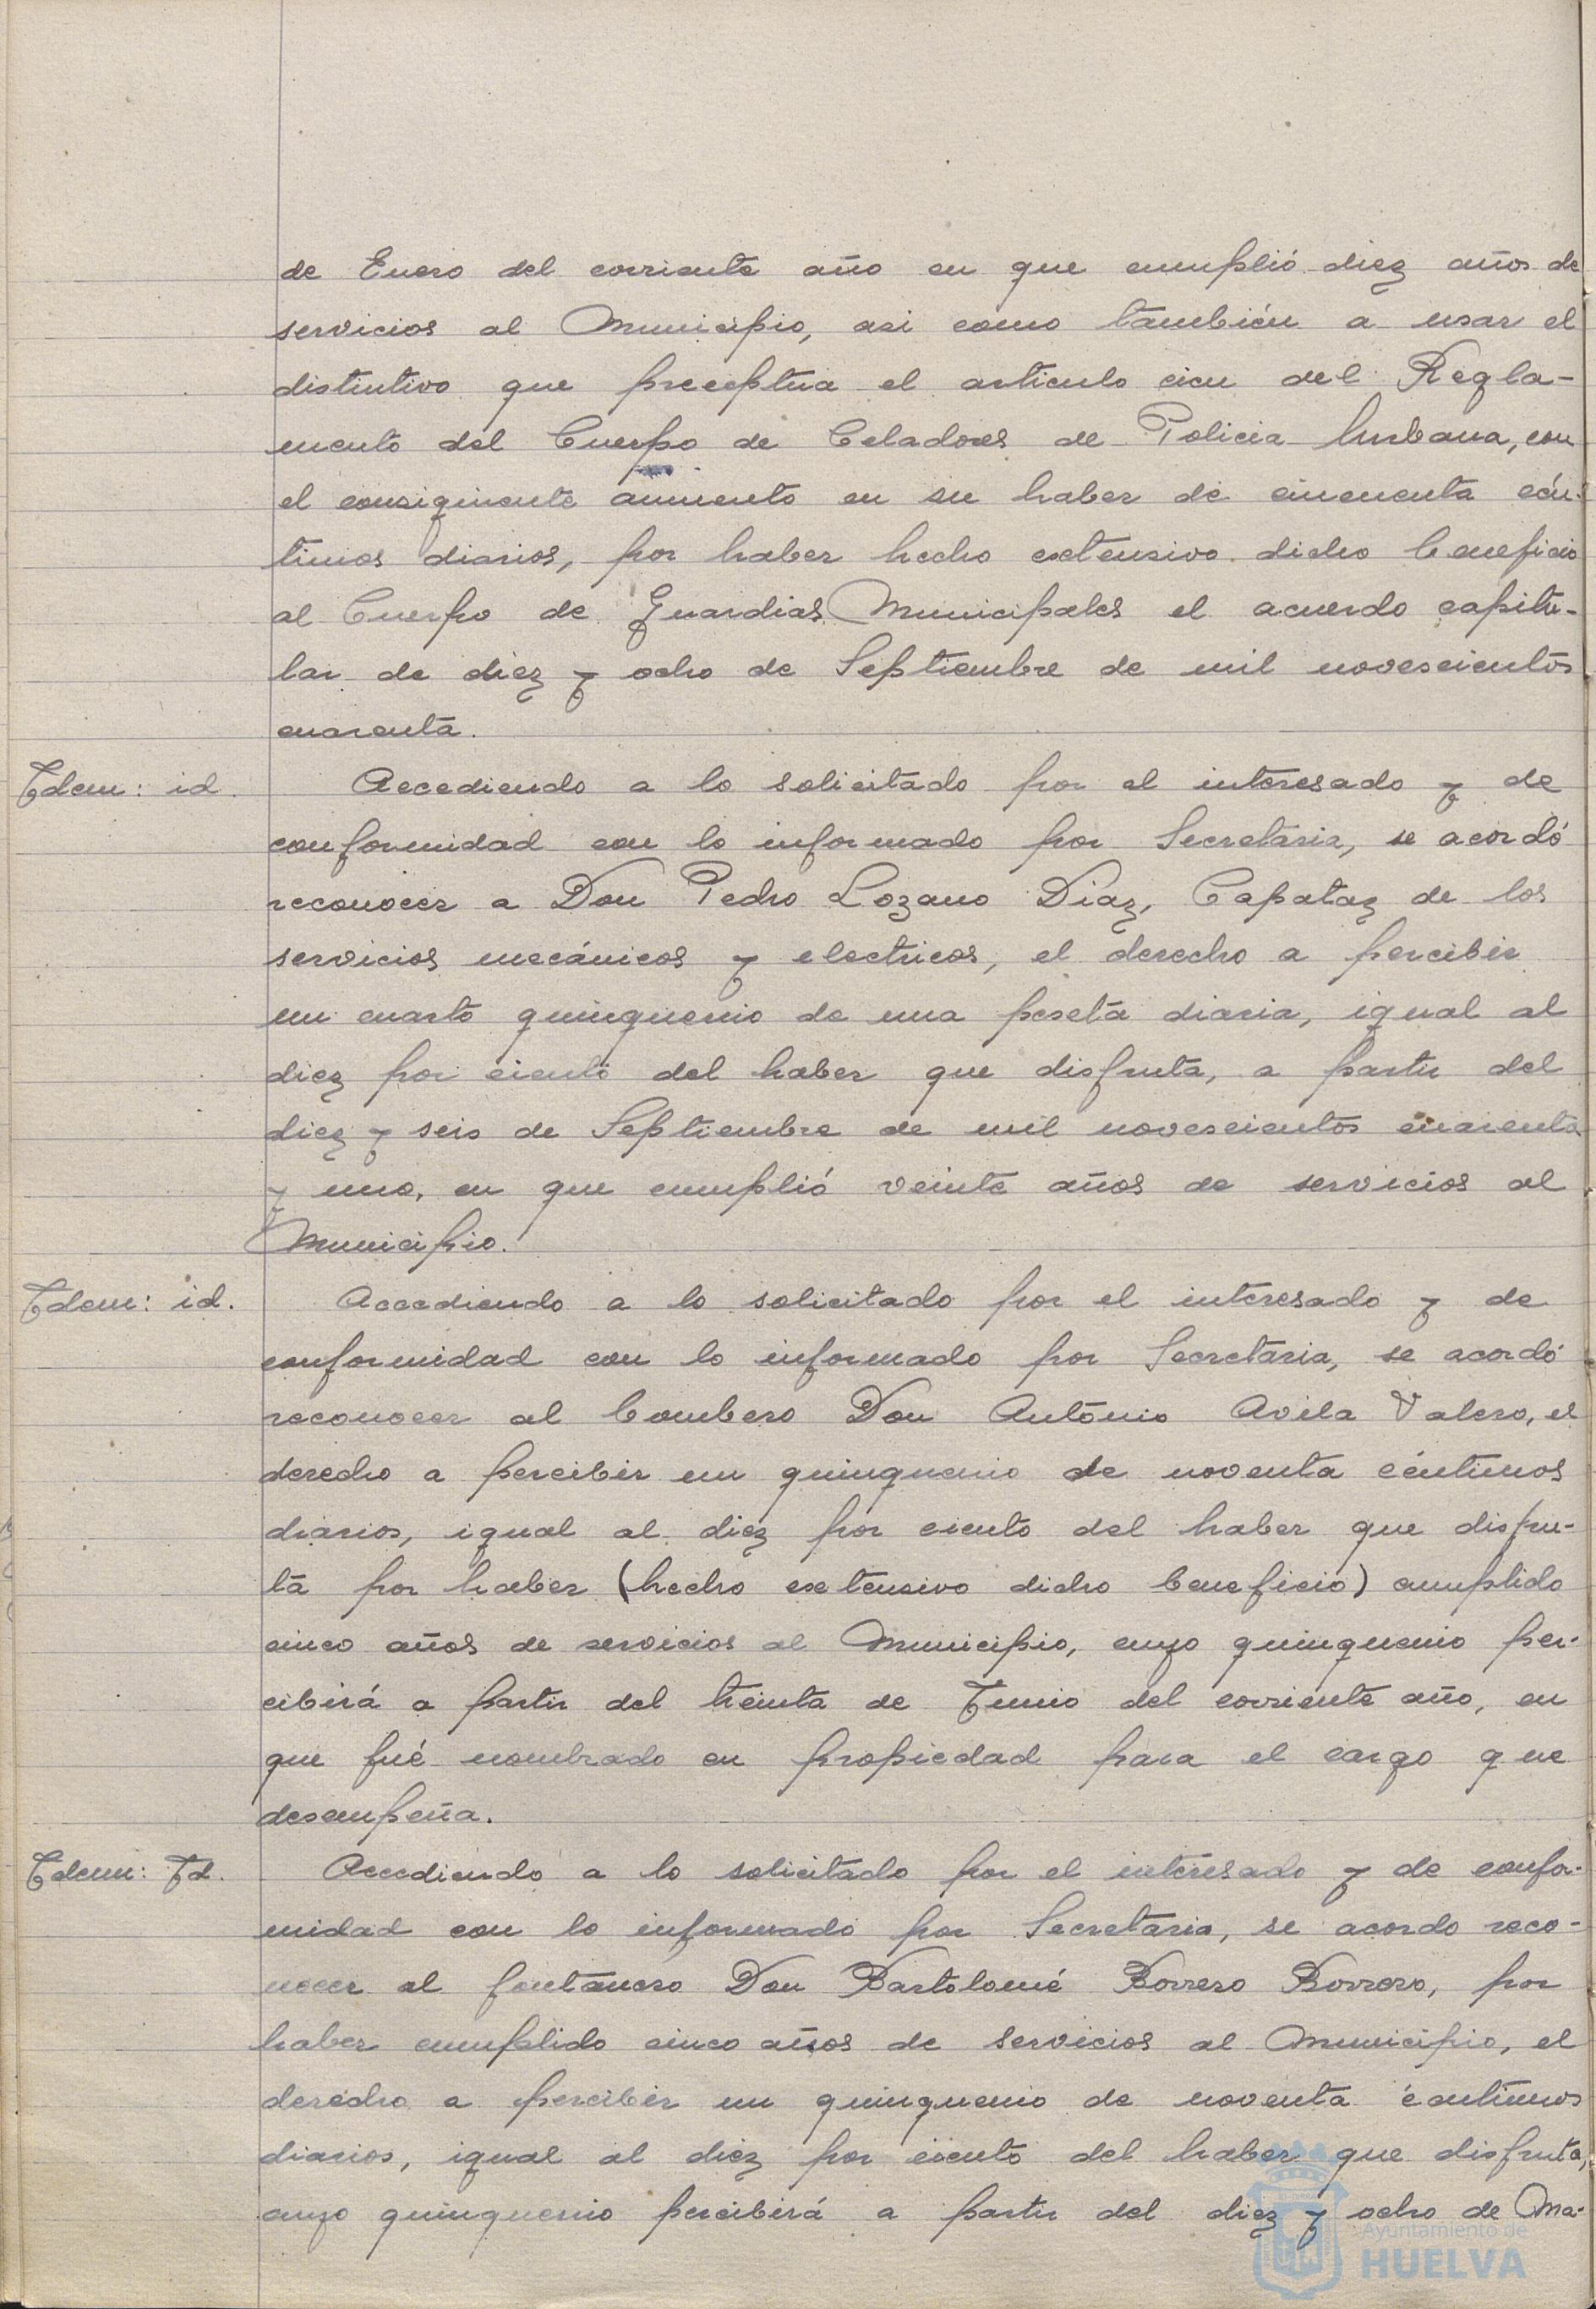 de Enero del corriente año en que cumplió diez años de
servicios al Municipio, asi como también a usar el
distintivo que preceptúa el articulo cien del Regla-
mento del Cuerpo de Celadores de Policia Urbana, con
el consiguiente aumento en su haber de cincuenta cén-
timos diarios, por haber hecho extensivo dicho beneficio
al Cuerpo de Guardias Municipales el acuerdo capitu-
lar de diez y ocho de Septiembre de mil novescientos
cuarenta.
Idem: id. Accediendo a lo solicitado por el interesado y de
conformidad con lo informado por Secretaria, se acordó
reconocer a Don Pedro Lozano Díaz, Capataz de los
servicios mecánicos y electricos, el derecho a percibir
un cuarto quinquenio de una peseta diaria, igual al
diez por ciento del haber que disfruta, a partir del
diez y seis de Septiembre de mil novescientos cuarenta
y uno, en que cumplió veinte años de servicios al
Municipio.
Idem: id. Accediendo a lo solicitado por el interesado y de
conformidad con lo informado por Secretaria, se acordó
reconocer al bombero Don Antonio Avila Valero, el
derecho a percibir un quinquenio de noventa céntimos
diarios, igual al diez por ciento del haber que disfru-
ta por haber (hecho extensivo dicho beneficio) cumplido
cinco años de servicios al Municipio, cuyo quinquenio per-
cibirá a partir del treinta de Junio del corriente año, en
que fué nombrado en propiedad para el cargo que
desempeña.
Idem: Id. Accediendo a lo solicitado por el interesado y de confor-
midad con lo informado por Secretaria, se acordo reco-
nocer al fontanero Don Bartolomé Borrero Borrero, por
haber cumplido cinco años de servicios al Municipio, el
derecho a percibir un quinquenio de noventa céntimos
diarios, igual al diez por ciento del haber que disfruta,
cuyo quinquenio percibirá a partir del diez y ocho de Ma-
Ayuntamiento de
HUELVA